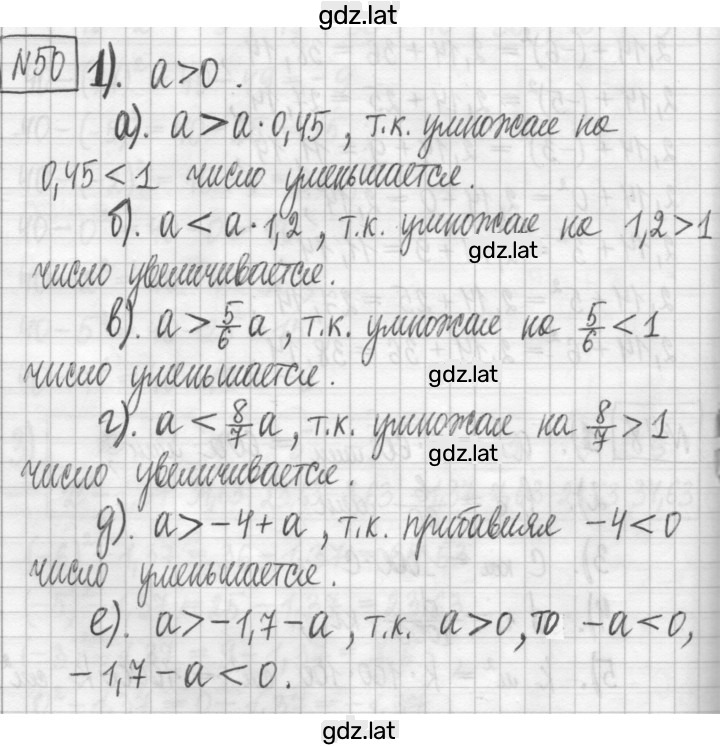 gdz.lat
N50 1). a>0.
а). a>a·0,45, т.к. умножая на
0,45<1 число уменьшается.
б). a<a·1,2, т.к. умножая на 1,2>1
gdz.lat
число увеличивается.
в). a>5/6 a, т.к. умножая на 5/6<1
число уменьшается.
gdz.lat
г). a<8/7 a, т.к. умножая на 8/7>1
gdz.lat
число увеличивается.
д). a>-4+a, т.к. прибавляя -4<0
число уменьшается.
е). a>-1,7-a, т.к. a>0, то -a<0,
-1,7-a<0.
gdz.lat